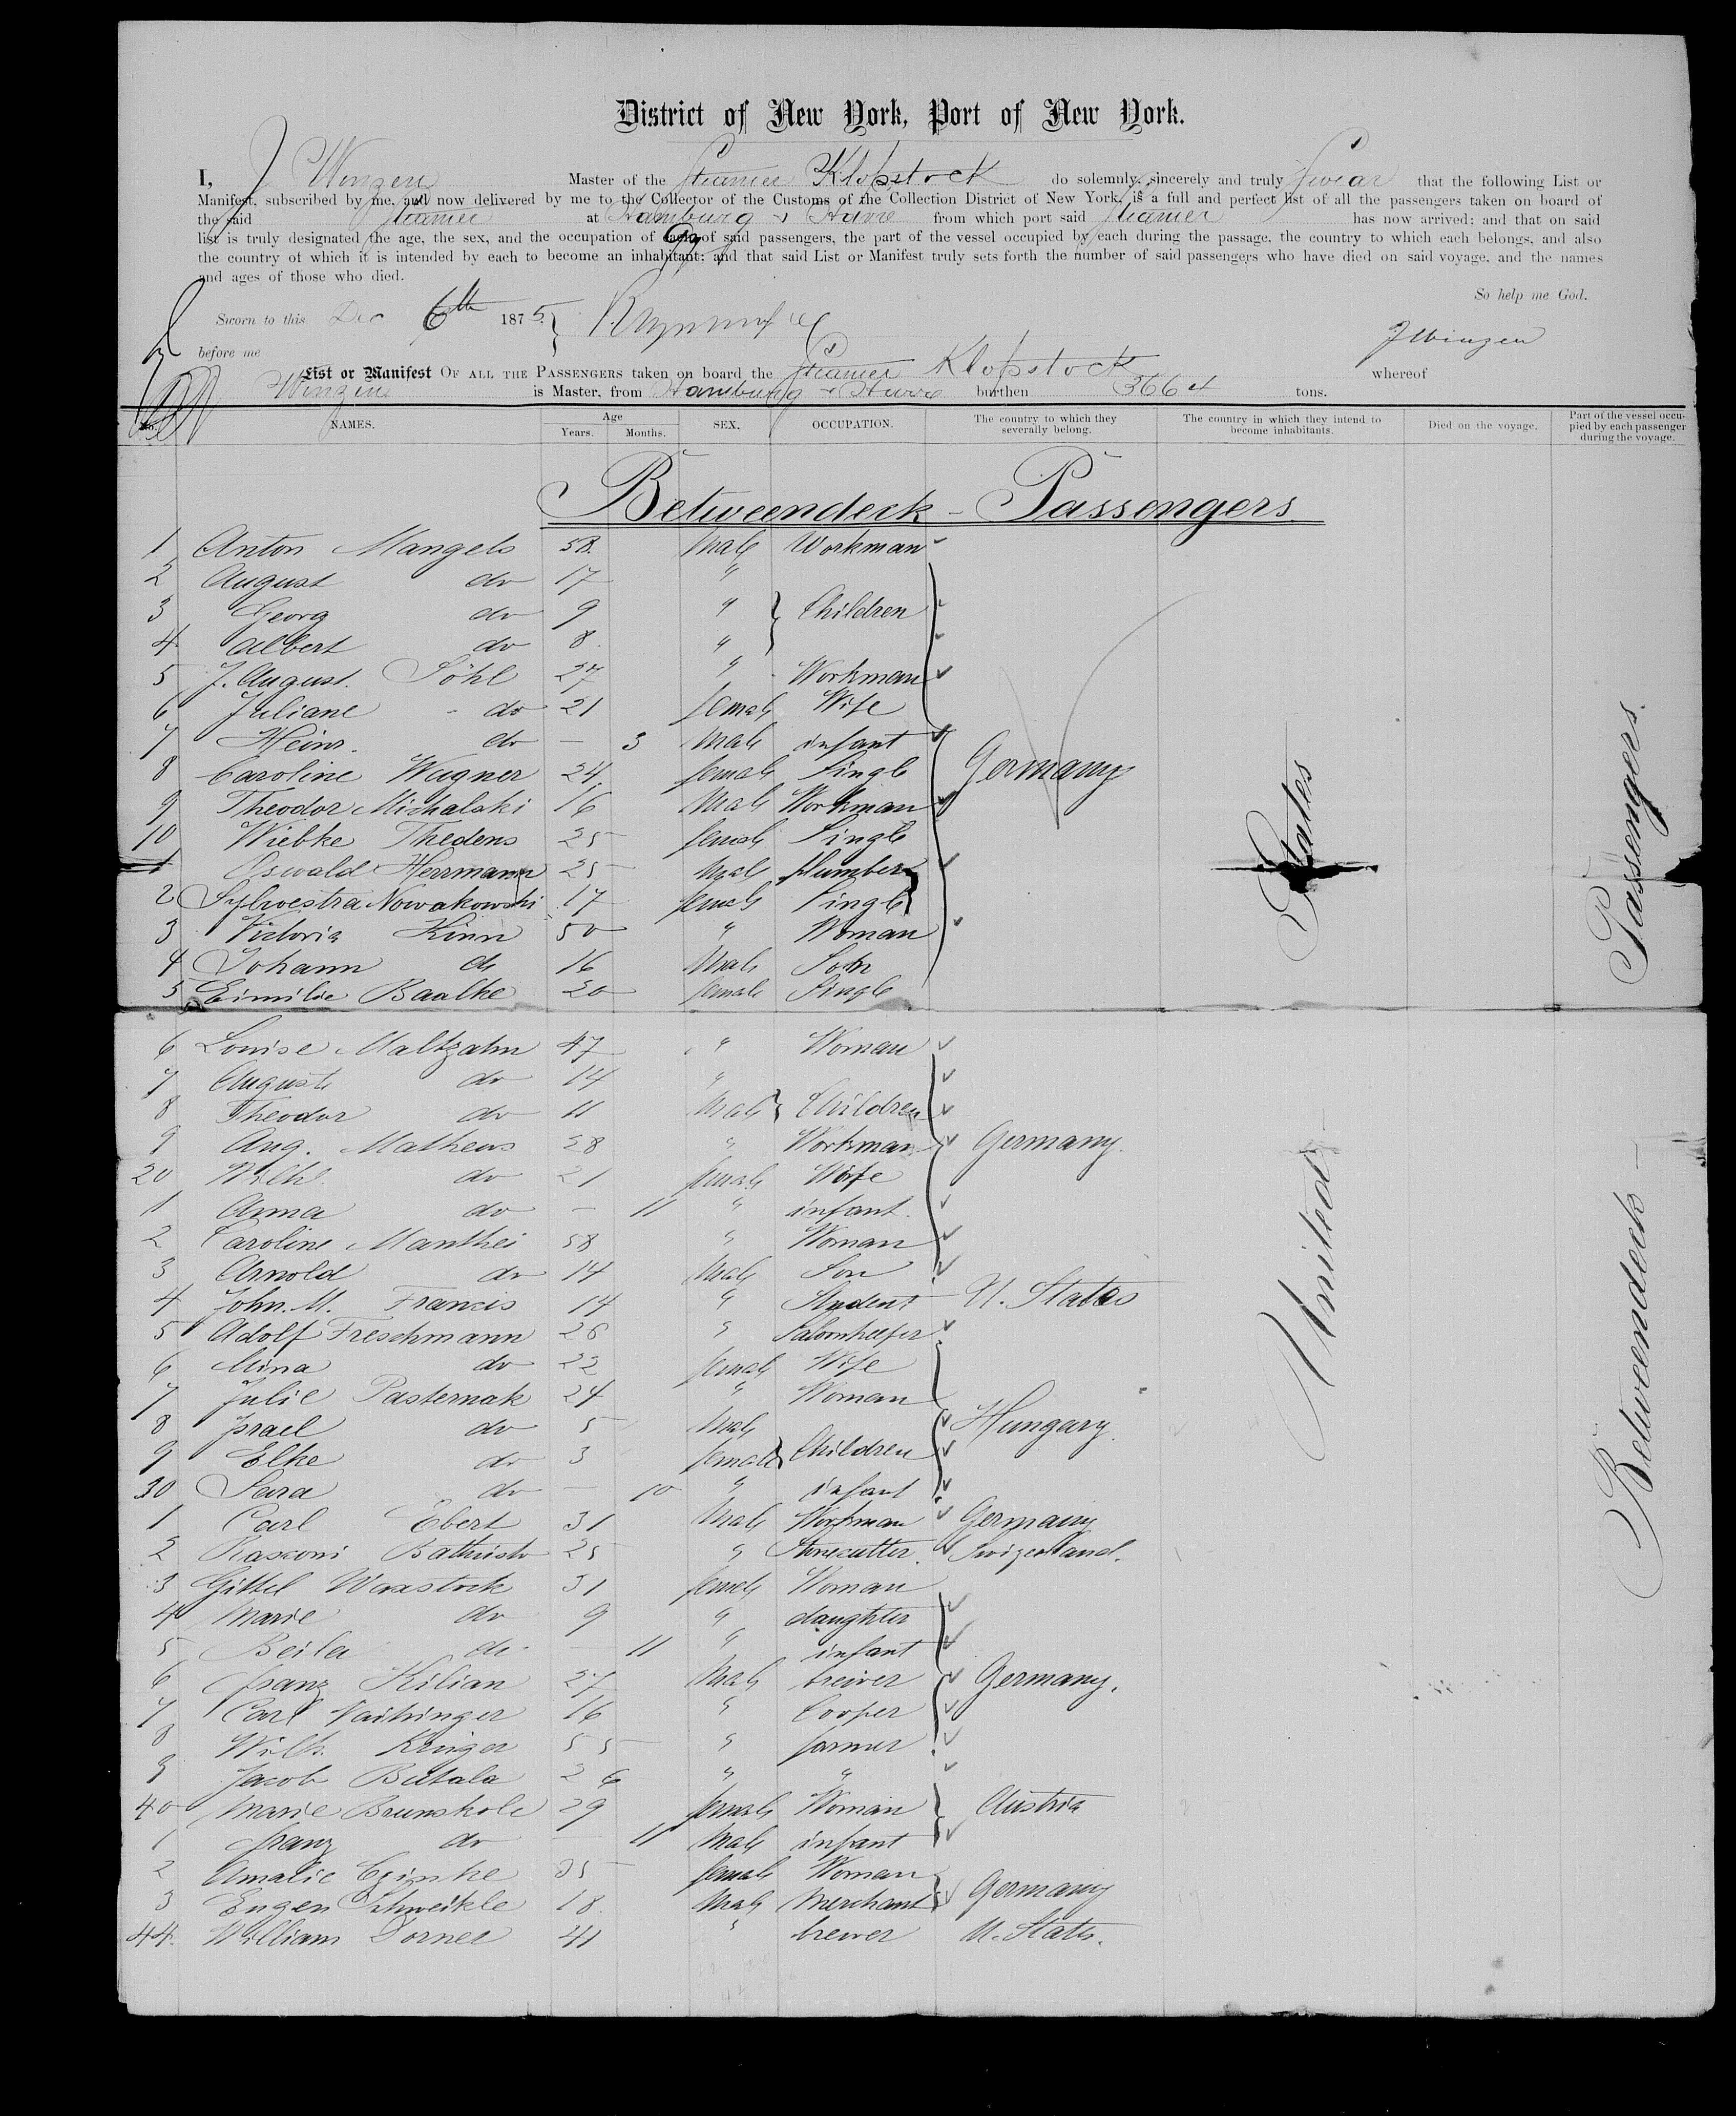 District of New York, Port of New York.
I, J Winzen Master of the Steamer Klopstock do solemnly, sincerely and truly Swear that the following List or
Manifest, subscribed by me, and now delivered by me to the Collector of the Customs of the Collection District of New York, is a full and perfect list of all the passengers taken on board of
the said Steamer at Hamburg & Havre from which port said Steamer has now arrived; and that on said
list is truly designated the age, the sex, and the occupation of each of said passengers, the part of the vessel occupied by each during the passage, the country to which each belongs, and also
the country of which it is intended by each to become an inhabitant; and that said List or Manifest truly sets forth the number of said passengers who have died on said voyage, and the names
and ages of those who died.
So help me God.
Sworn to this Dec 6th 1875
JWinzen
before me
List or Manifest OF ALL THE PASSENGERS taken on board the Steamer Klopstock whereof
Winzen is Master, from Hamburg & Havre burthen 3664 tons.
No. NAMES. Age Years. Months. SEX. OCCUPATION. The country to which they severally belong. The country in which they intend to become inhabitants. Died on the voyage. Part of the vessel occupied by each passenger during the voyage.
Betweendeck - Passengers
1 Anton Mangels 58. Male Workman
2 August do 17 "
3 Georg do 9 " Children
4 Albert do 8 "
5 J. August. Söhl 27 " Workman
6 Juliane do 21 female Wife
7 Heinr. do - 3 Male infant
8 Caroline Wagner 24 female Single Germany
9 Theodor Michalski 16 Male Workman
10 Wiebke Thedens 25 female Single
1 Oswald Herrmann 25 Male plumber
2 Sylvestra Nowakowski 17 female Single
3 Victoria Kinn 50 " Woman
4 Johann do 16 Male Son
5 Eimilie Baalke 20 female Single
6 Louise Maltzahn 47 " Woman
7 Auguste do 14 "
8 Theodor do 11 Male Children
9 Aug. Mathews 28 " Workman Germany.
20 Wilh. do 21 female Wife
1 Anna do - 11 " infant.
2 Caroline Manthei 58 " Woman
3 Arnold do 14 Male Son
4 John. M. Francis 14 " Student U. States
5 Adolf Freschmann 26 " Saloonkeeper
6 Mina do 22 female Wife
7 Julie Pasternak 24 " Woman
8 Israel do 5 Male Hungary.
9 Elke do 3 female Children
30 Sara do - 10 " infant
1 Carl Ebert 31 Male Workman Germany
2 Rasconi 25 " Stonecutter. Swizerland.
3 Gittel Waxstock 31 female Woman
4 Marie do 9 " daughter
5 Beila do - 11 " infant
6 Franz Kilian 27 Male brewer Germany.
7 Carl Vaihinger 16 " Cooper
8 Wilh. Kruger 55 " farmer
9 Jacob Butala 26 " "
40 Marie Brunskole 29 female Woman Austria
1 Franz do - 11 Male infant
2 Amalie Czinke 35 female Woman
3 Eugen Schweikle 18. Male Merchant Germany
44. William Dornee 41 " brewer U. States.
United States
Betweendeck - Passengers.